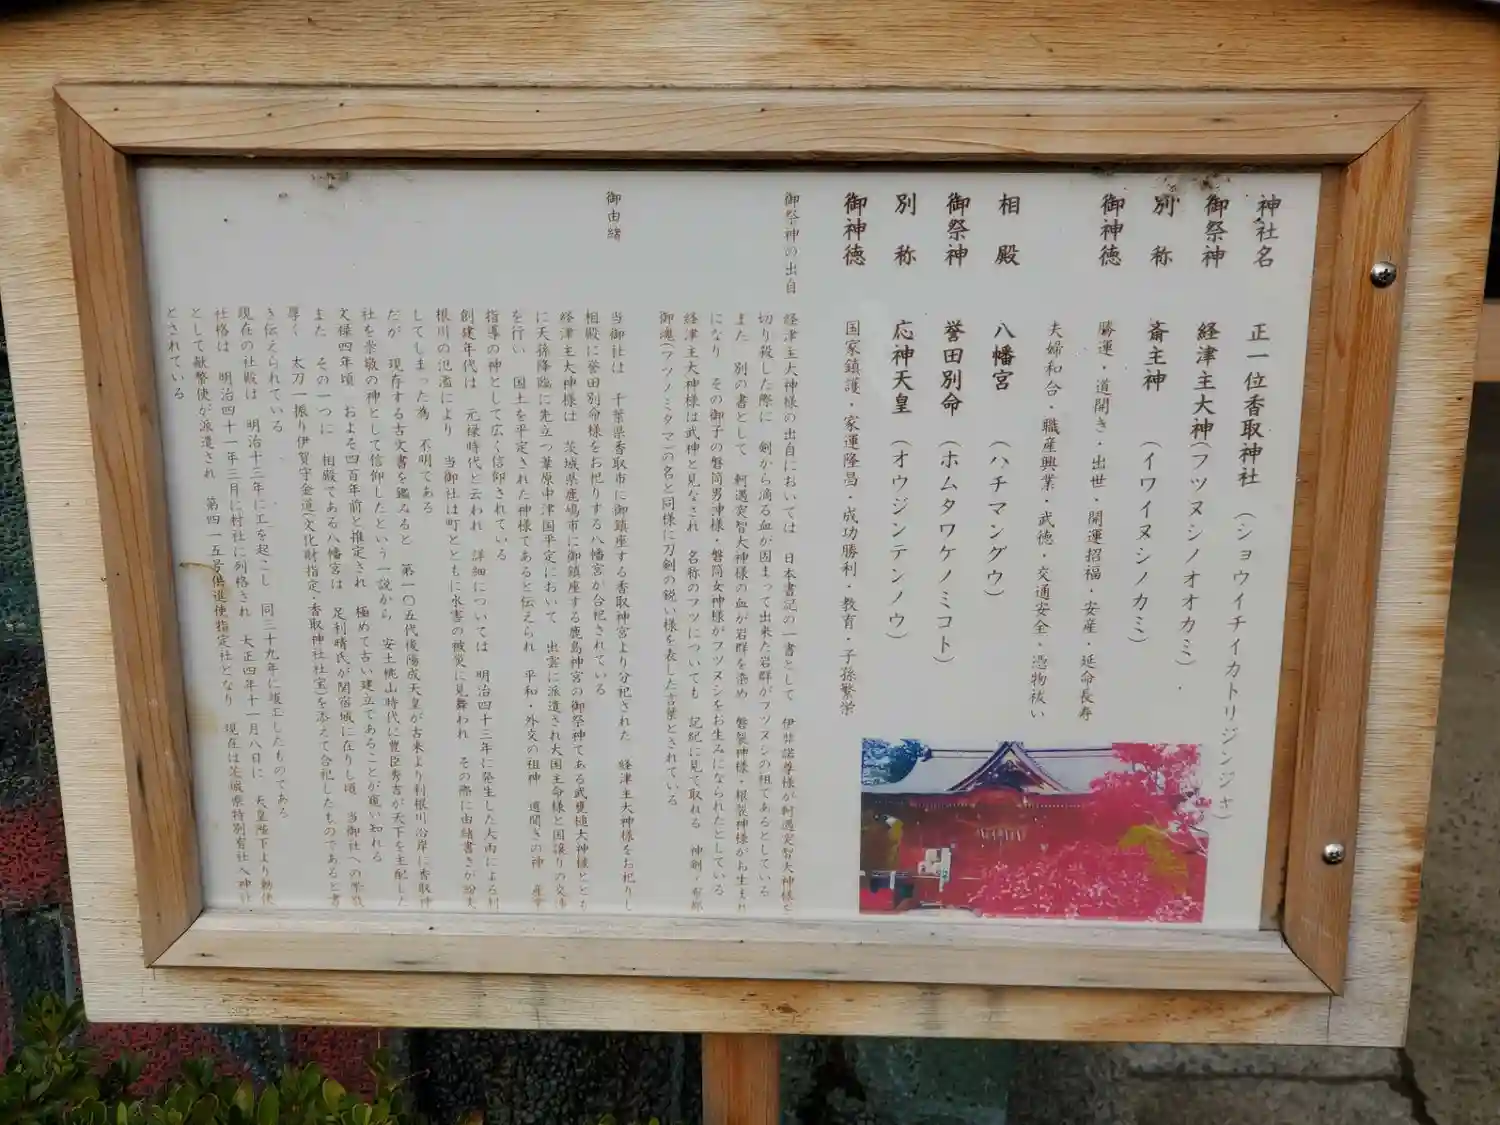 神社名 正一位香取神社 (ショウイチイカトリジンジャ)
御祭神 経津主大神(フツヌシノオオカミ)
別 称 斎主神 (イワイヌシノカミ)
御神徳 勝運・道開き・出世・開運招福・安産・延命長寿
夫婦和合・職産興業・武徳・交通安全・憑物祓い
相 殿 八幡宮 (ハチマングウ)
御祭神 誉田別命 (ホムタワケノミコト)
別 称 応神天皇 (オウジンテンノウ)
御神徳 国家鎮護・家運隆昌・成功勝利・教育・子孫繁栄
御祭神の出自 経津主大神様の出自においては 日本書記の一書として 伊弉諾尊様が軻遇突智大神様を
切り殺した際に 剣から滴る血が固まって出来た岩群がフツヌシの祖であるとしている
また 別の書として 軻遇突智大神様の血が岩群を染め 磐裂神様・根裂神様がお生まれ
になり その御子の磐筒男神様・磐筒女神様がフツヌシをお生みになられたとしている
経津主大神様は武神と見なされ 名称のフツについても 記紀に見て取れる 神剣・布都
御魂(フツノミタマ)の名と同様に刀剣の鋭い様を表した言葉とされている
御由緒 当御社は 千葉県香取市に御鎮座する香取神宮より分祀された 経津主大神様をお祀りし
相殿に誉田別命様をお祀りする八幡宮が合祀されている
経津主大神様は 茨城県鹿嶋市に御鎮座する鹿島神宮の御祭神である武甕槌大神様ととも
に天孫降臨に先立つ葦原中津国平定において 出雲に派遣され大国主命様と国譲りの交渉
を行い 国土を平定された神様であると伝えられ 平和・外交の祖神 道開きの神 産業
指導の神として広く信仰されている
創建年代は 元禄時代と云われ 詳細については 明治四十三年に発生した大雨による利
根川の氾濫により 当御社は町とともに水害の被災に見舞われ その際に由緒書きが紛失
してしまった為 不明である
だが 現存する古文書を鑑みると 第一〇五代後陽成天皇が古来より利根川沿岸に香取神
社を崇敬の神として信仰したという一説から 安土桃山時代に豊臣秀吉が天下を主配した
文禄四年頃 およそ四百年前と推定され 極めて古い建立であることが窺い知れる
また その一つに 相殿である八幡宮は 足利晴氏が関宿城に在りし頃 当御社への崇敬
厚く 太刀一振り伊賀守金道(文化財指定・香取神社社宝)を添えて合祀したものであると書
き伝えられている
現在の社殿は 明治十三年に工を起こし 同三十九年に竣工したものである
社格は 明治四十一年三月に村社に列格され 大正四年十一月八日に 天皇陛下より勅使
として献幣使が派遣され 第四一五号供進使指定社となり 現在は茨城県特別宥社へ神社
とされている